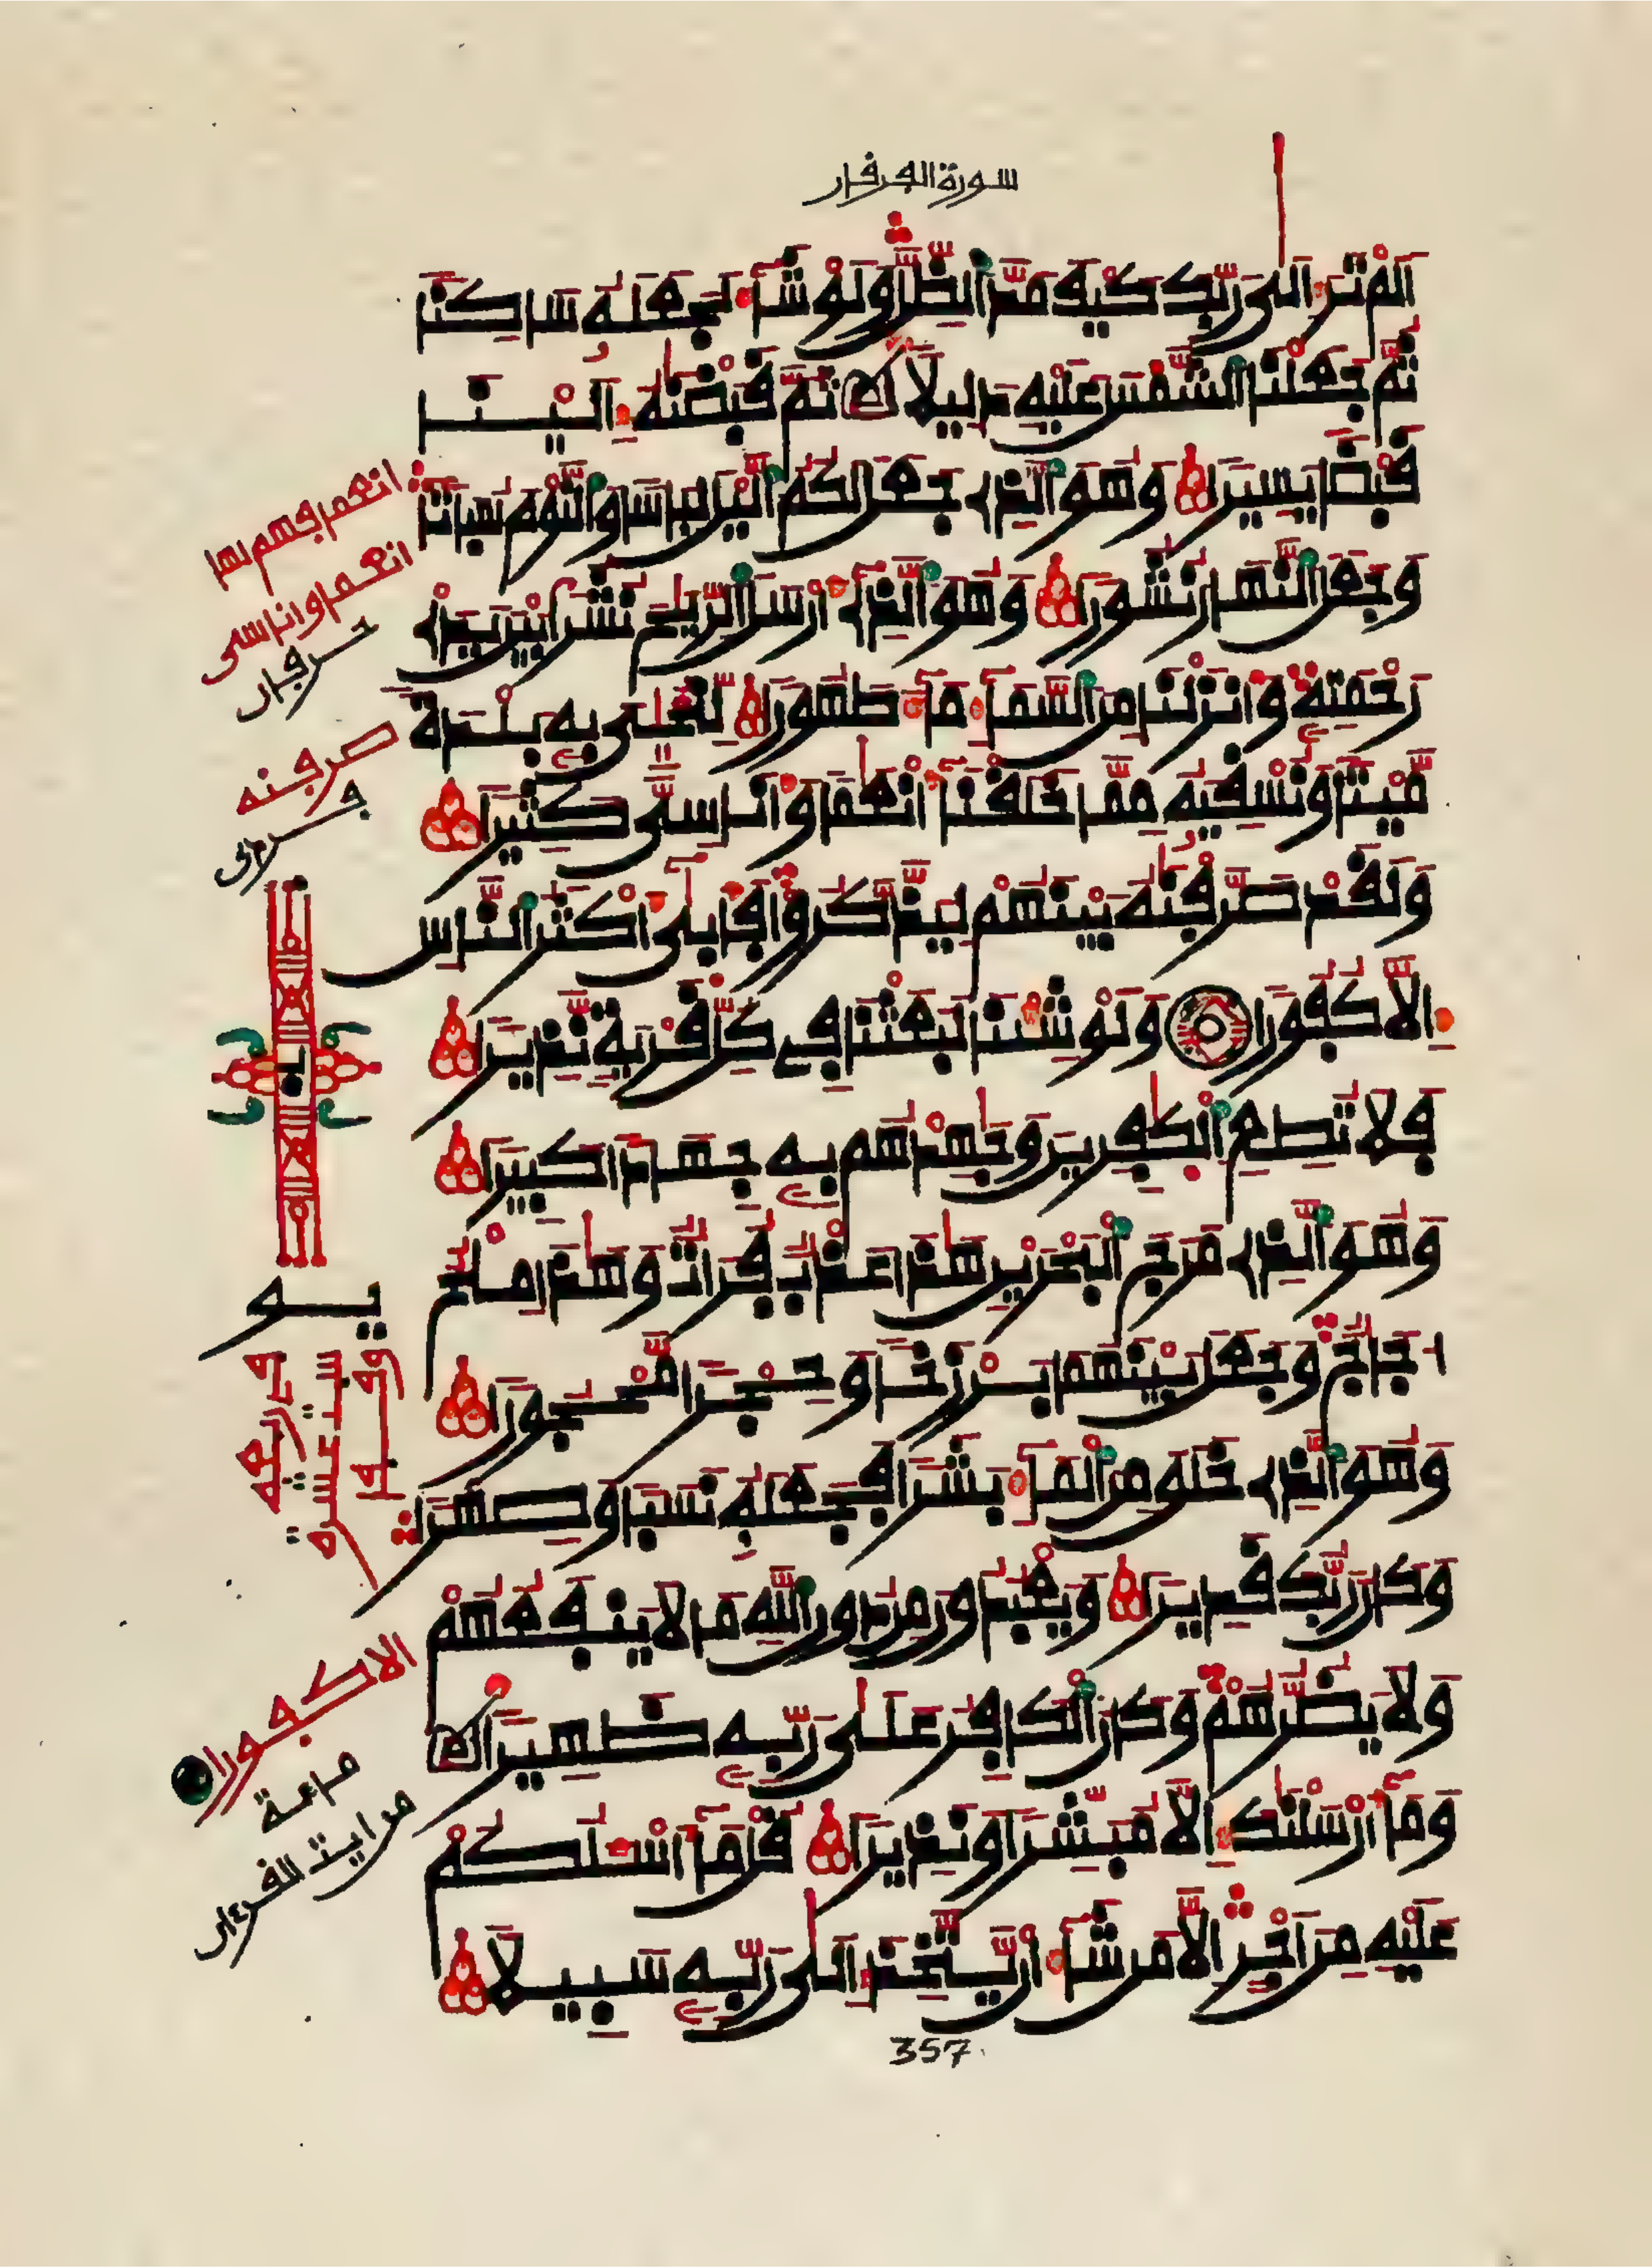 سورة الفرقان
اَلَمْ تَرَ إِلَىٰ رَبِّكَ كَيْفَ مَدَّ اَلظِّلَّ وَلَوْ شَآءَ لَجَعَلَهُ سَاكِنًا
ثُمَّ جَعَلْنَا اَلشَّمْسَ عَلَيْهِ دَلِيلًا ثُمَّ قَبَضْنَٰهُ إِلَيْنَا
قَبْضًا يَسِيرًا وَهُوَ اَلَّذِے جَعَلَ لَكُمُ اَلَّيْلَ لِبَاسًا وَالنَّوْمَ سُبَاتًا
وَجَعَلَ اَلنَّهَارَ نُشُورًا وَهُوَ اَلَّذِے أَرْسَلَ اَلرِّيَٰحَ نُشُرًا بَيْنَ يَدَےْ
رَحْمَتِهِ وَأَنزَلْنَا مِنَ اَلسَّمَآءِ مَآءً طَهُورًا لِّنُحْيِىَ بِهِ بَلْدَةً
مَّيْتًا وَنُسْقِيَهُ مِمَّا خَلَقْنَا أَنْعَٰمًا وَأَنَاسِىَّ كَثِيرًا
وَلَقَدْ صَرَّفْنَٰهُ بَيْنَهُمْ لِيَذَّكَّرُوا فَأَبَىٰ أَكْثَرُ اَلنَّاسِ
إِلَّا كُفُورًا وَلَوْ شِئْنَا لَبَعَثْنَا فِے كُلِّ قَرْيَةٍ نَّذِيرًا
فَلَا تُطِعِ اِلْكَٰفِرِينَ وَجَٰهِدْهُم بِهِ جِهَادًا كَبِيرًا
وَهُوَ اَلَّذِے مَرَجَ اَلْبَحْرَيْنِ هَٰذَا عَذْبٌ فُرَاتٌ وَهَٰذَا مِلْحٌ
اجَاجٌ وَجَعَلَ بَيْنَهُمَا بَرْزَخًا وَحِجْرًا مَّحْجُورًا
وَهُوَ اَلَّذِے خَلَقَ مِنَ اَلْمَآءِ بَشَرًا فَجَعَلَهُ نَسَبًا وَصِهْرًا
وَكَانَ رَبُّكَ قَدِيرًا وَيَعْبُدُونَ مِن دُونِ اِللَّهِ مَا لَا يَنفَعُهُمْ
وَلَا يَضُرُّهُمْ وَكَانَ اَلْكَافِرُ عَلَىٰ رَبِّهِ ظَهِيرًا
وَمَآ أَرْسَلْنَٰكَ إِلَّا مُبَشِّرًا وَنَذِيرًا قُلْ مَآ أَسْـَٔلُكُمْ
عَلَيْهِ مِنَ اَجْرٍ اِلَّا مَن شَآءَ أَنْ يَّتَّخِذَ إِلَىٰ رَبِّهِ سَبِيلًا
357
انعما قسم لها
انعما واناسى
حرفان
صرفنه
الا كفورا
ماءة
من ايت القرءان